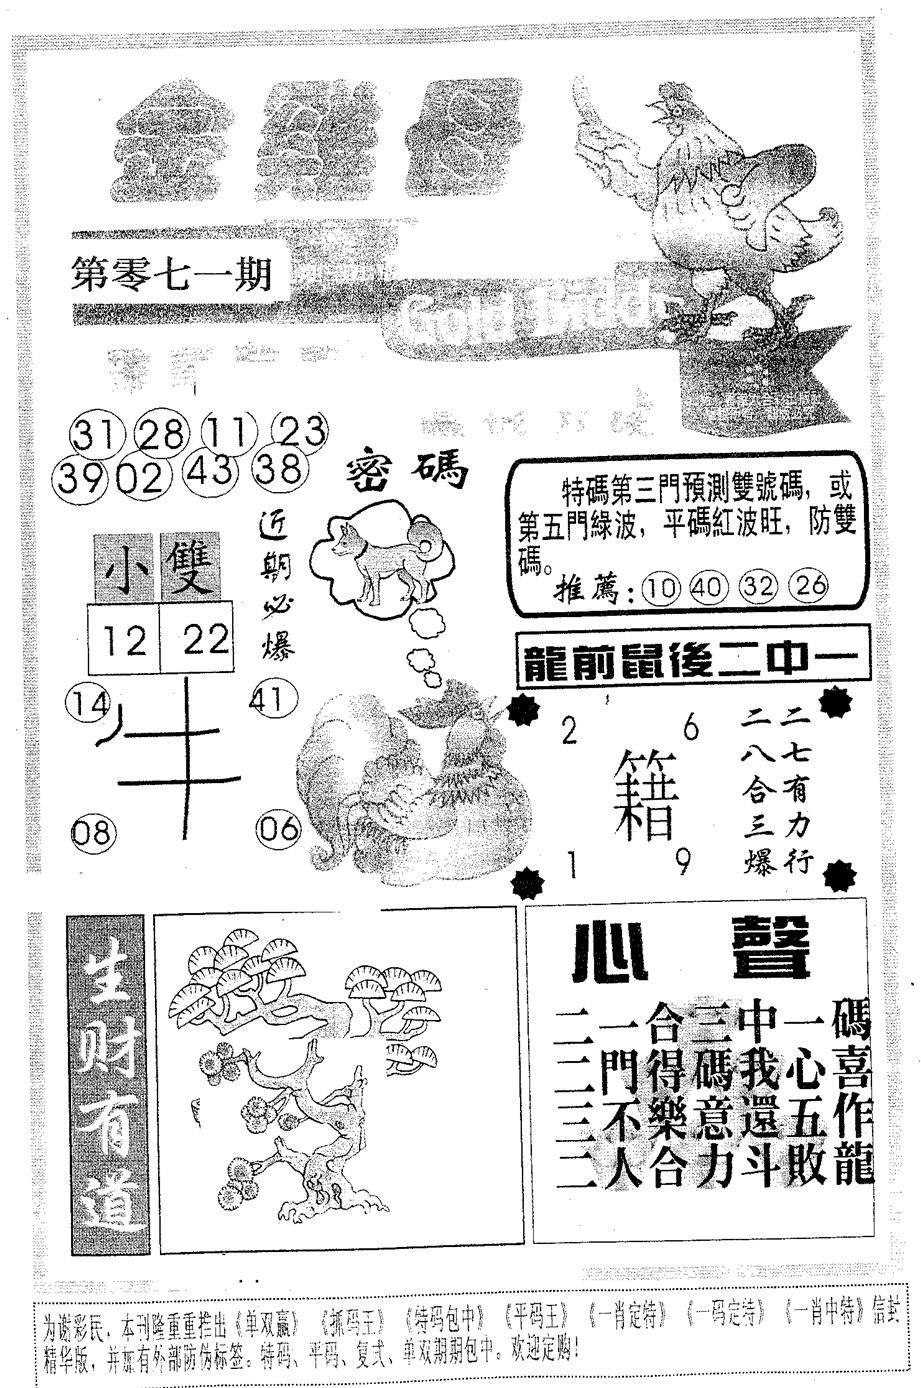 第零七一期
31 28 11 23
39 02 43 38
密碼
近期必爆
小 雙
12 22
14 41
牛
08 06
特碼第三門預測雙號碼，或
第五門綠波，平碼紅波旺，防雙
碼。
推薦：10 40 32 26
龍前鼠後二中一
2 6
籍
1 9
二七有力行
二八合三爆
生财有道
心聲
二一合三中一碼
二門得碼我心喜
三不樂意還五作
二人合力斗敗龍
为谢彩民，本刊隆重重推出《单双赢》《抓码王》《特码包中》《平码王》《一肖定特》《一码定特》《一肖中特》信封
精华版，并加有外部防伪标签。特码、平码、复式、单双期期包中。欢迎定购！